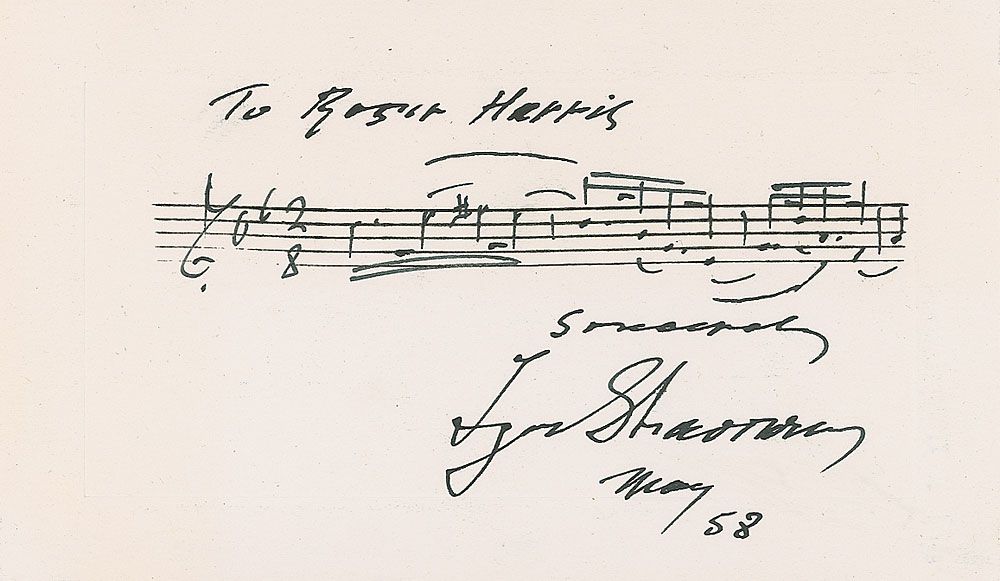 To Roger Harris
2
8
Sincerely
Igor Stravinsky
May
58